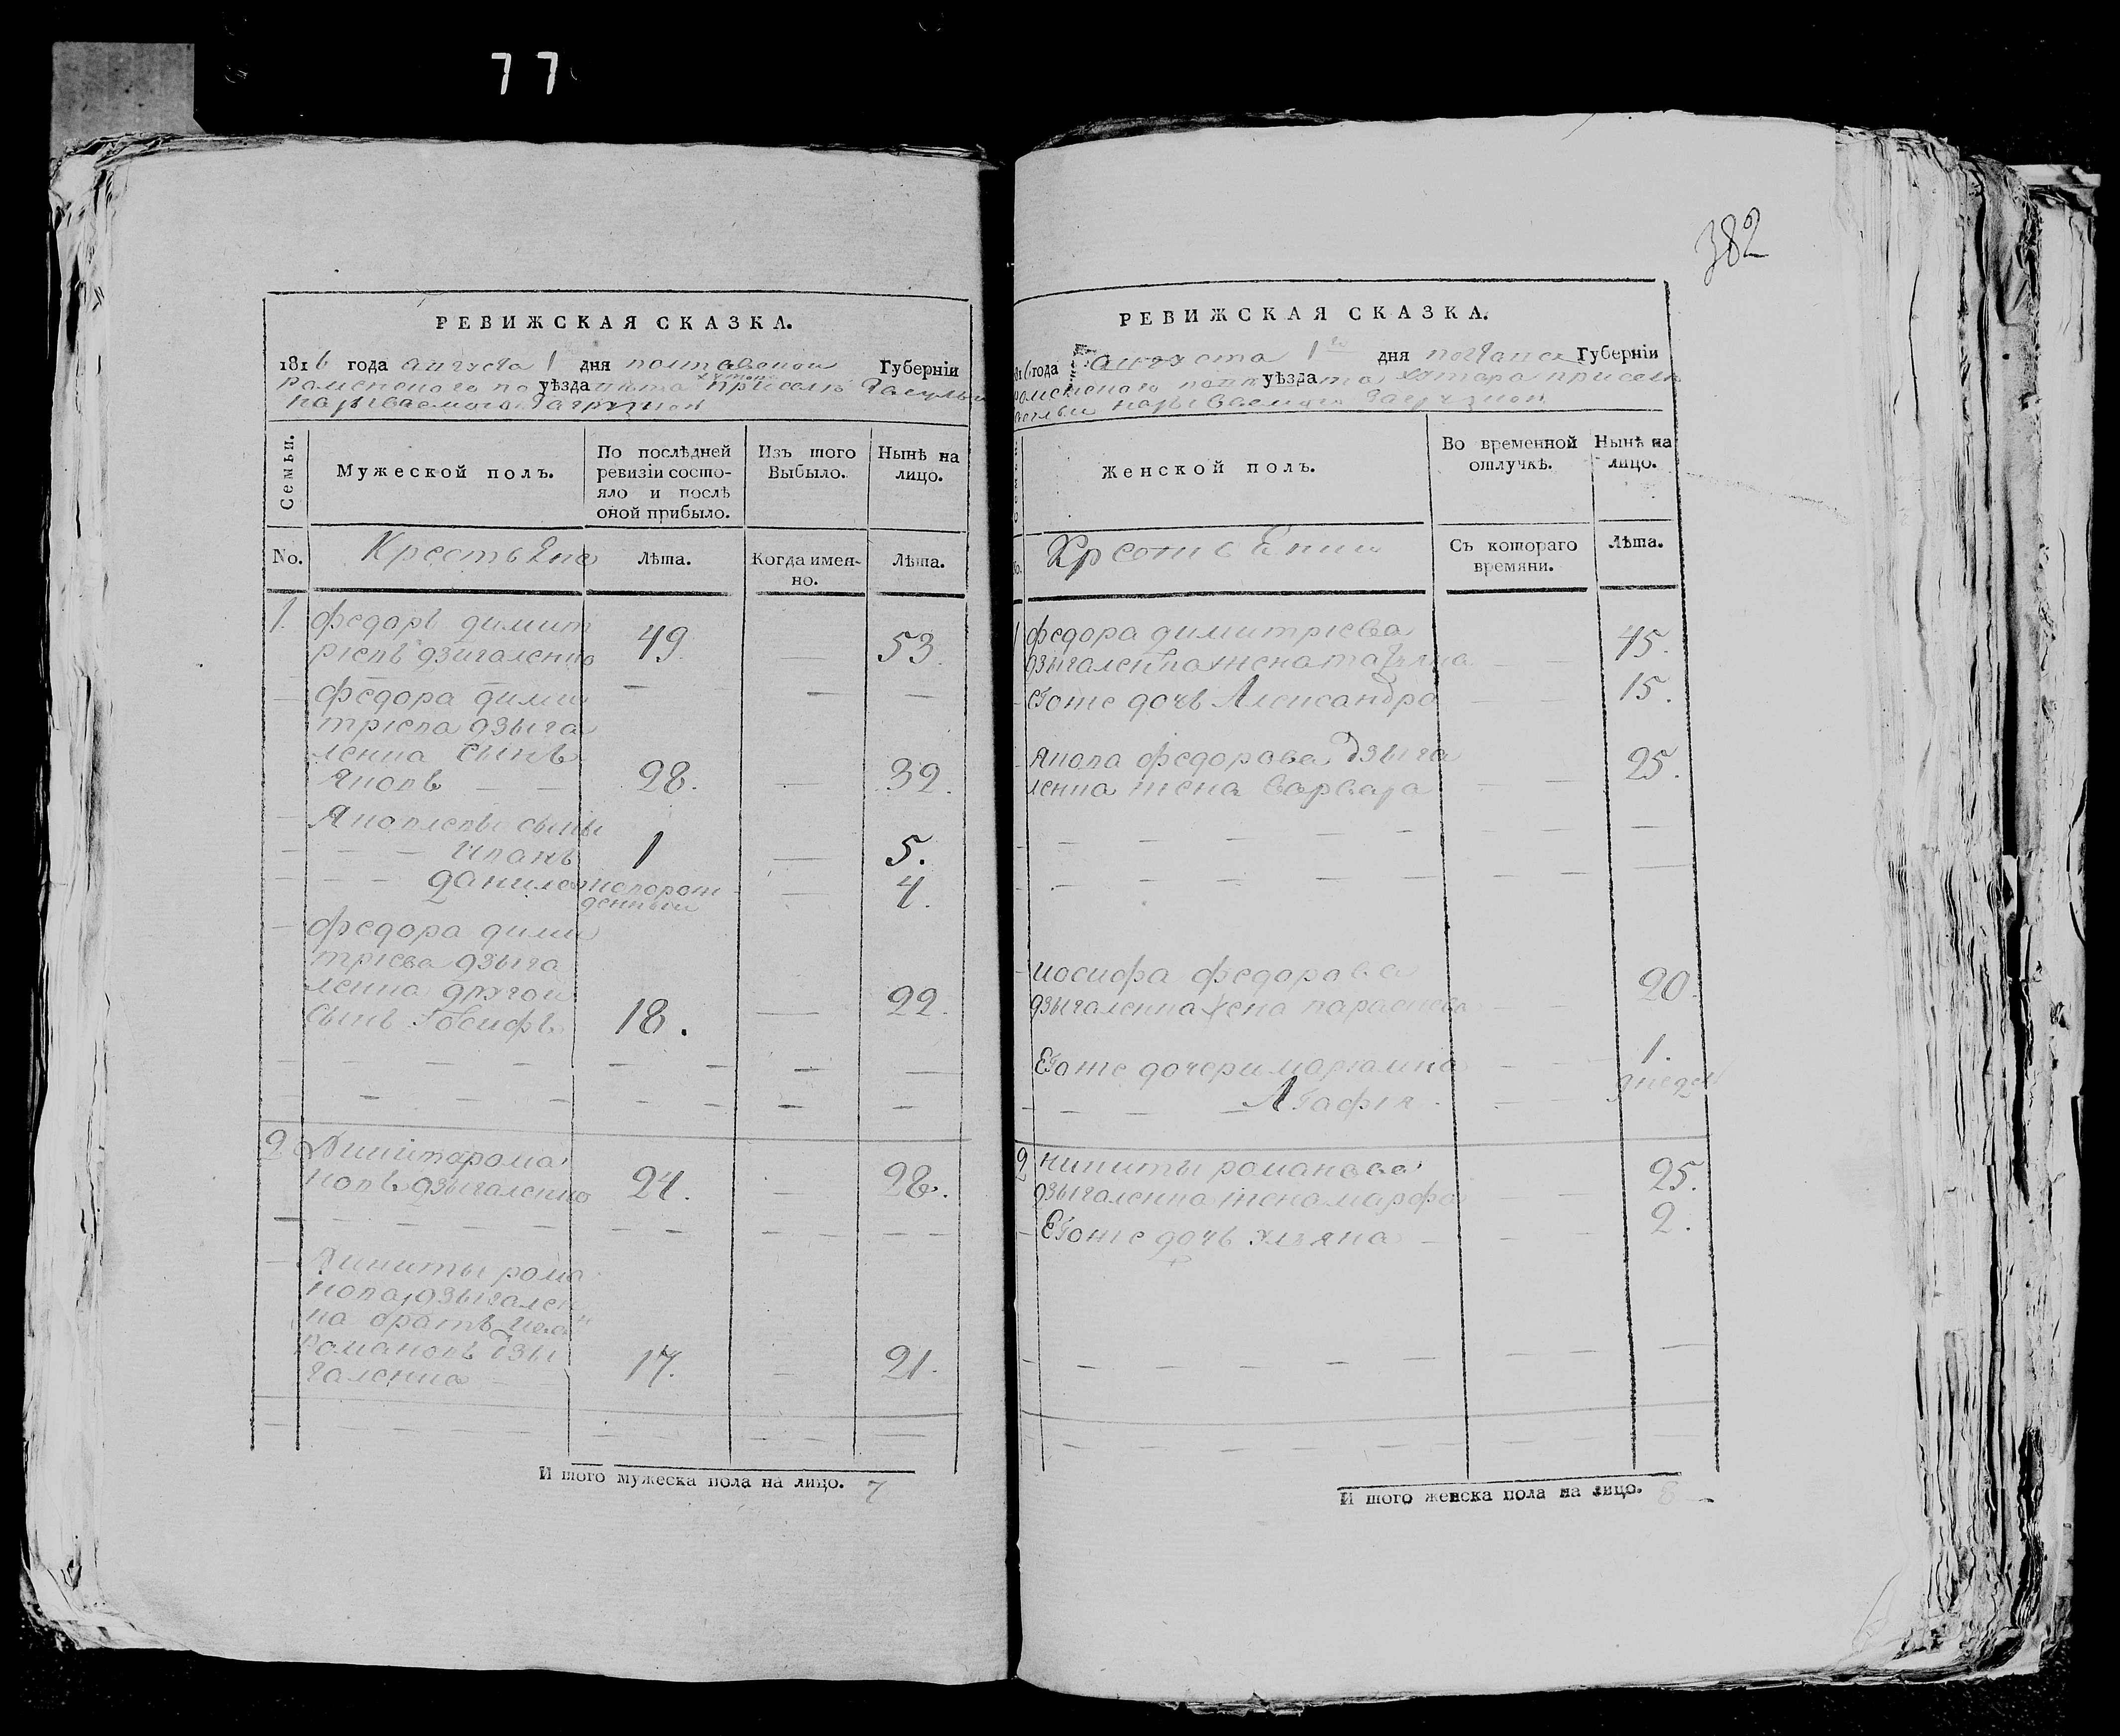 77
382
РЕВИЖСКАЯ СКАЗКА.
1816 года августа 1 дня полтавской Губерніи
роменского уѣзда
называемого
Семьи.
Мужеской полъ.
По послѣдней
ревизіи состо-
яло и послѣ
оной прибыло.
Изъ того
Выбыло.
Нынѣ на
лицо.
No.
Крестьяне
Лѣта.
Когда имен-
но.
Лѣта.
1. федоръ димит
ріевъ дзигаленко 49. 53.
федора дими
тріева дзыга
ленка сынъ
Яковъ 28. 32.
Яковлевы сыны
Иванъ 1 5.
данило неворож
денный 4.
федора дими
тріева дзыга
ленка другой
сынъ Іосифъ 18. 22.
2 Никита рома
новъ дзыгаленко 24. 28.
Никиты рома
нова дзыгален
ка братъ
романовъ дзы
галенко 17. 21.
И того мужеска пола на лицо. 7
РЕВИЖСКАЯ СКАЗКА.
1816 года августа 1го дня Губерніи
роменского уѣзда хутора присел
называемого
Женской полъ.
Во временной
отлучкѣ.
Нынѣ на
лицо.
Крестьяне
Съ котораго
времяни.
Лѣта.
1 федора димитріева
дзыгаленка жена татяна 45.
Егоже дочь Александра 15.
Якова федорова дзыга
ленка жена варвара 25.
иосифа федорова
дзыгаленка жена параскева 20.
Егоже дочери марѳа 1.
Агафія
2 никиты романова
дзыгаленка жена марфа 25.
Егоже дочь 2.
И того женска пола на лицо. 8